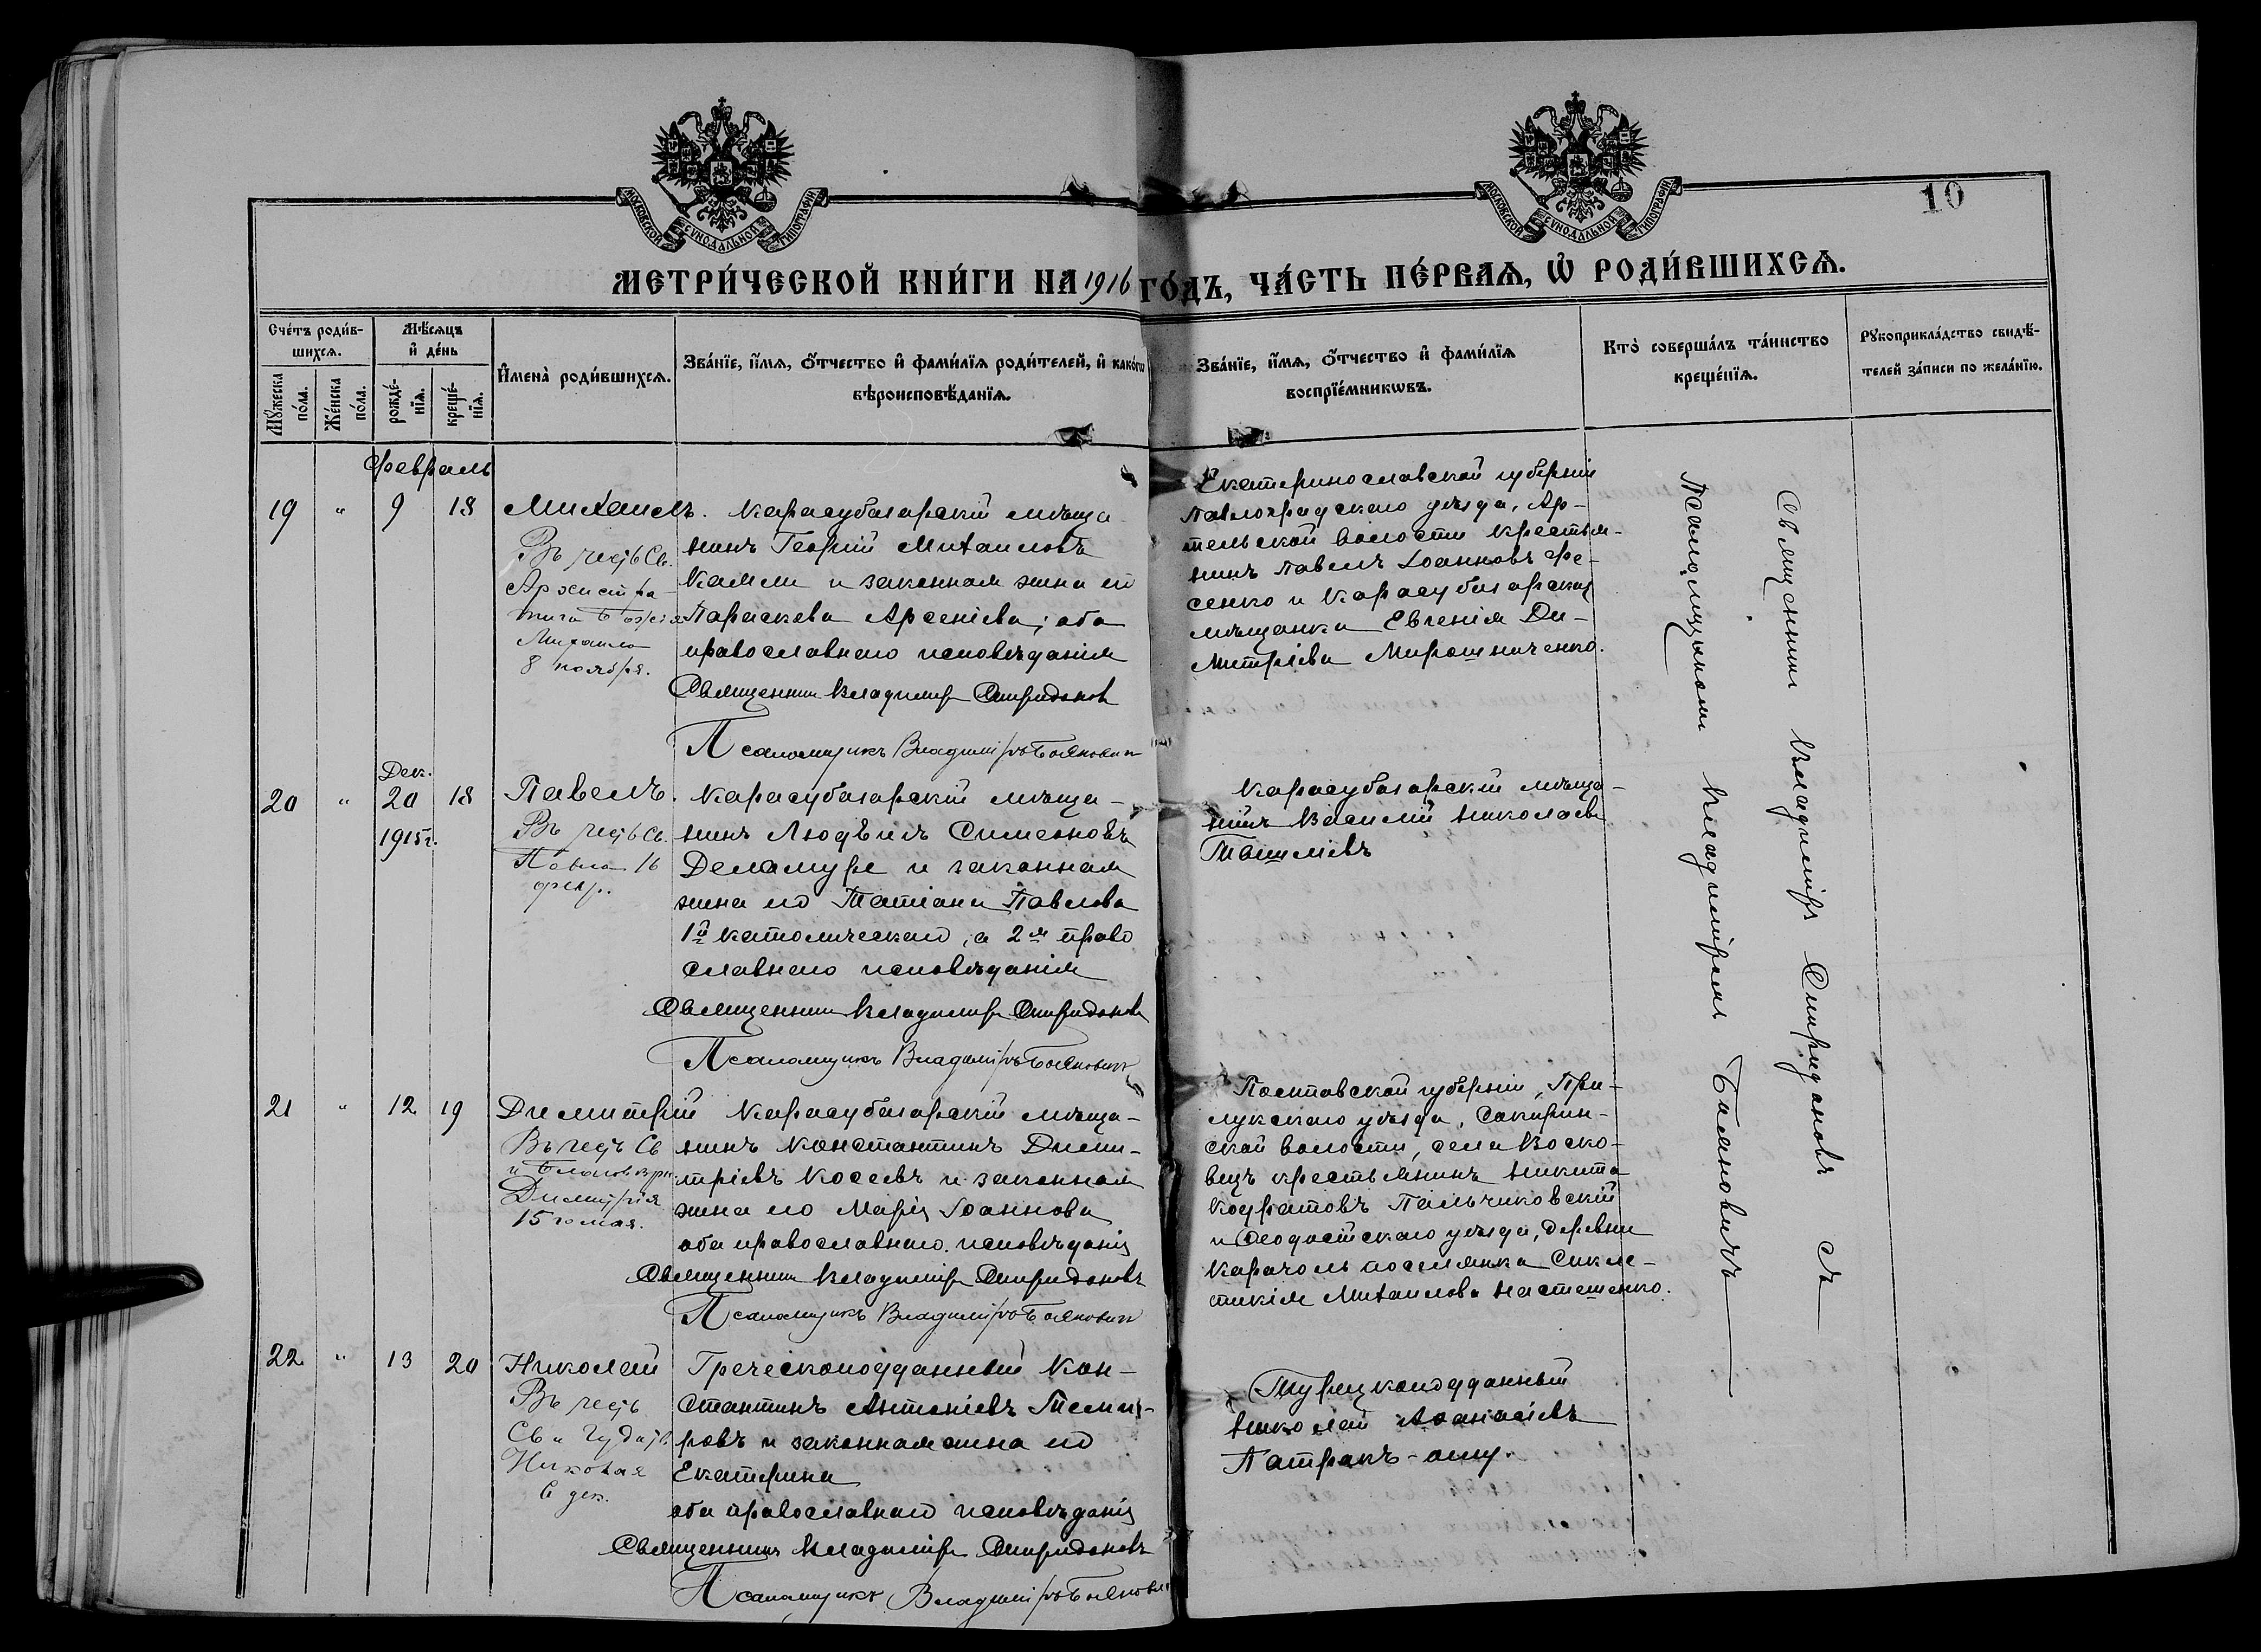 МОСКОВСКОЙ СѴНОДАЛЬНОЙ ТИПОГРАФІИ
МОСКОВСКОЙ СѴНОДАЛЬНОЙ ТИПОГРАФІИ
10
МЕТРИ́ЧЕСКОЙ КНИ́ГИ НА 1916 ГО́ДЪ, ЧА́СТЬ ПЕ́РВАѦ, Ѽ РОДИ́ВШИХСѦ.
Сче́тъ роди́в-
шихсѧ.
Мꙋ́жеска
по́ла.
Же́нска
по́ла.
Мѣ́сѧцъ
и҆ де́нь
рожде́-
нїѧ.
креще́-
нїѧ.
И҆мена̀ роди́вшихсѧ.
Зва́нїе, и҆́мѧ, ѻ҆́тчество и҆ фами́лїѧ роди́телей, и҆ како́гѡ
вѣроисповѣ́данїѧ.
Зва́нїе, и҆́мѧ, ѻ҆́тчество и҆ фами́лїѧ
воспрїе́мникѡвъ.
Кто̀ соверша́лъ та́инство
креще́нїѧ.
Рꙋкоприкла́дство свидѣ́-
телей за́писи по жела́нїю.
Февраль
19 " 9 18
Михаилъ.
Въ честь Св.
Архистра-
тига Божія
Михаила
8 ноября.
Карасубазарскій мѣща-
нинъ Георгій Михаиловъ
Калли и законная жена его
Параскева Арсеніева; оба
православнаго исповѣданія
Священникъ Владиміръ Спиридоновъ
Псаломщикъ Владиміръ Баяновичъ
Екатеринославской губерніи
Павлоградскаго уѣзда, Ар-
тельской волости крестья-
нинъ Павелъ Іоанновъ Фе-
сенко и Карасубазарская
мѣщанка Евгенія Ди-
митріева Мирошниченко.
Дек.
20 " 20 18
1915 г.
Павелъ.
Въ честь Св.
Павла 16
февр.
Карасубазарскій мѣща-
нинъ Людвигъ Симеоновъ
Деламуре и законная
жена его Татіана Павлова
1й католическаго, а 2я право
славнаго исповѣданія
Священникъ Владиміръ Спиридоновъ
Псаломщикъ Владиміръ Баяновичъ
Карасубазарскій мѣща-
нинъ Василій Николаевъ
21 " 12 19
Димитрій
Въ честь Св
и Благовѣрн
Димитрія
15 го мая.
Карасубазарскій мѣща-
нинъ Константинъ Дими-
тріевъ Косевъ и законная
жена его Марія Іоаннова
оба православнаго исповѣданія
Священникъ Владиміръ Спиридоновъ
Псаломщикъ Владиміръ Баяновичъ
Полтавской губерніи, При-
лукскаго уѣзда, Сокирин-
ской волости, села Воско-
вецъ крестьянинъ Никита
Кодратовъ Пальчиковскій
и Ѳеодосійскаго уѣзда, деревни
Карачоль поселянка Синкле-
тикія Михаилова Настешенко.
22 " 13 20
Николай
Въ честь
Св и Чудотв.
Николая
6 дек.
Греческоподданный Кон-
стантинъ Антоніевъ
и законная жена его
Екатерина
оба православнаго исповѣданія
Священникъ Владиміръ Спиридоновъ
Псаломщикъ Владиміръ Баяновичъ
Турецкоподданный
Николай Аѳанасіевъ
Священникъ Владиміръ Спиридоновъ съ
Псаломщикомъ Владиміромъ Баяновичъ